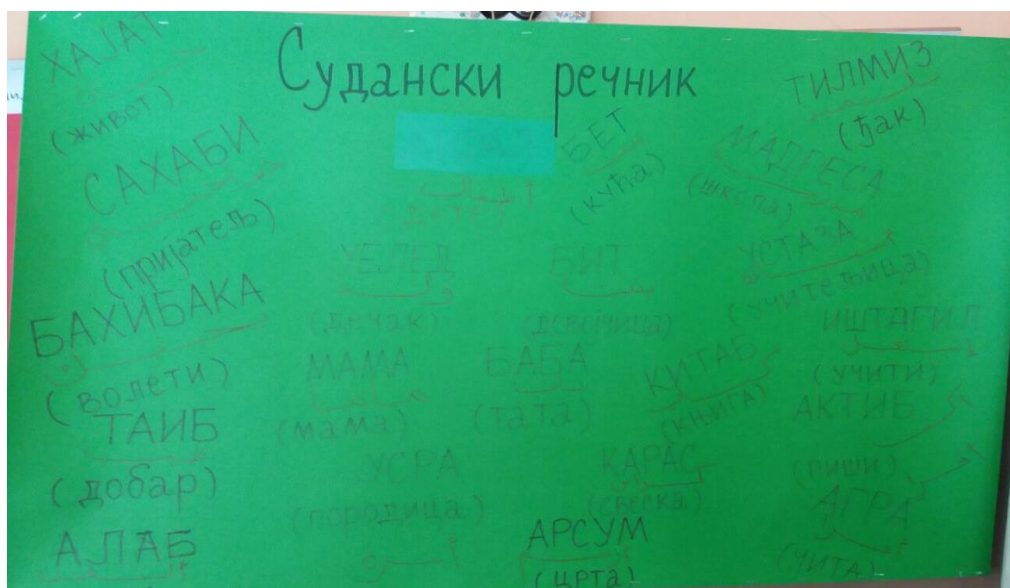 Судански речник
ХАЈАТ
(живот)
САХАБИ
(пријатељ)
БАХИБАКА
(волети)
ТАИБ
(добар)
АЛАБ
(дете)
УЕЛЕД
(дечак)
МАМА
(мама)
УСРА
(породица)
БЕТ
(кућа)
БИТ
(девојчица)
БАБА
(тата)
КАРАС
(свеска)
АРСУМ
(црта)
ТИЛМИЗ
(ђак)
МАДРЕСА
(школа)
УСТАЗА
(учитељица)
КИТАБ
(књига)
ИШТАГИЛ
(учити)
АКТИБ
(пиши)
АГРА
(чита)